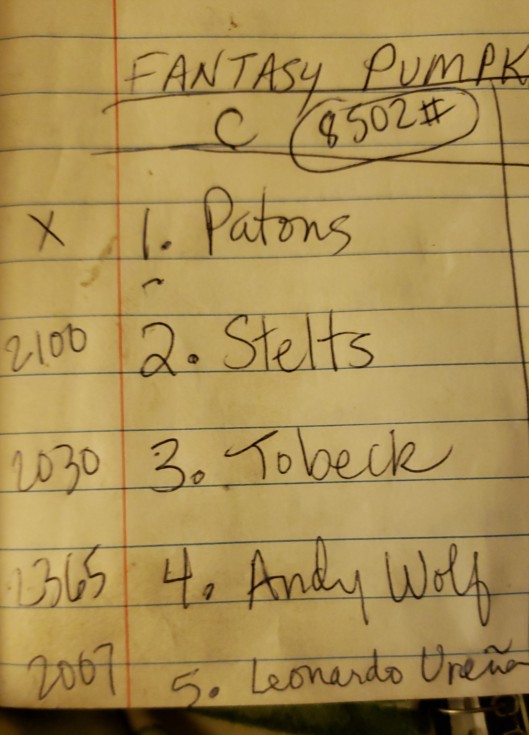 FANTASY PUMPK
C 8502#
X 1. Patons
2100 2. Stelts
2030 3. Tobeck
2365 4. Andy Wolf
2007 5. Leonardo Ureña